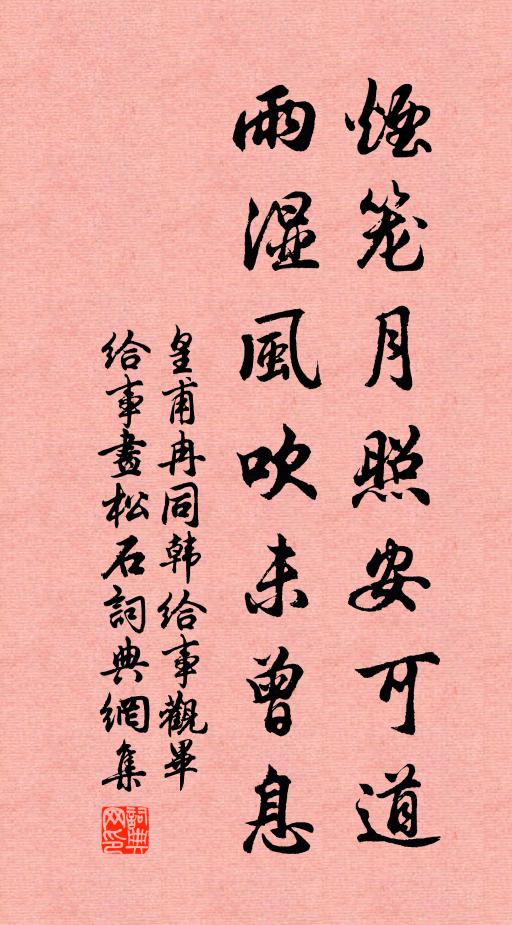 煙笼月照安可道
雨湿風吹未曾息
皇甫冉同韩给事觀畢
给事畫松石詞典網集
詞典网印